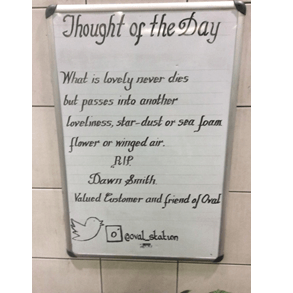 Thought of the Day
What is lovely never dies
but passes into another
loveliness, star-dust or sea foam
flower or winged air.
R.I.P
Dawn Smith.
Valued Customer and friend of Oval
@oval_station